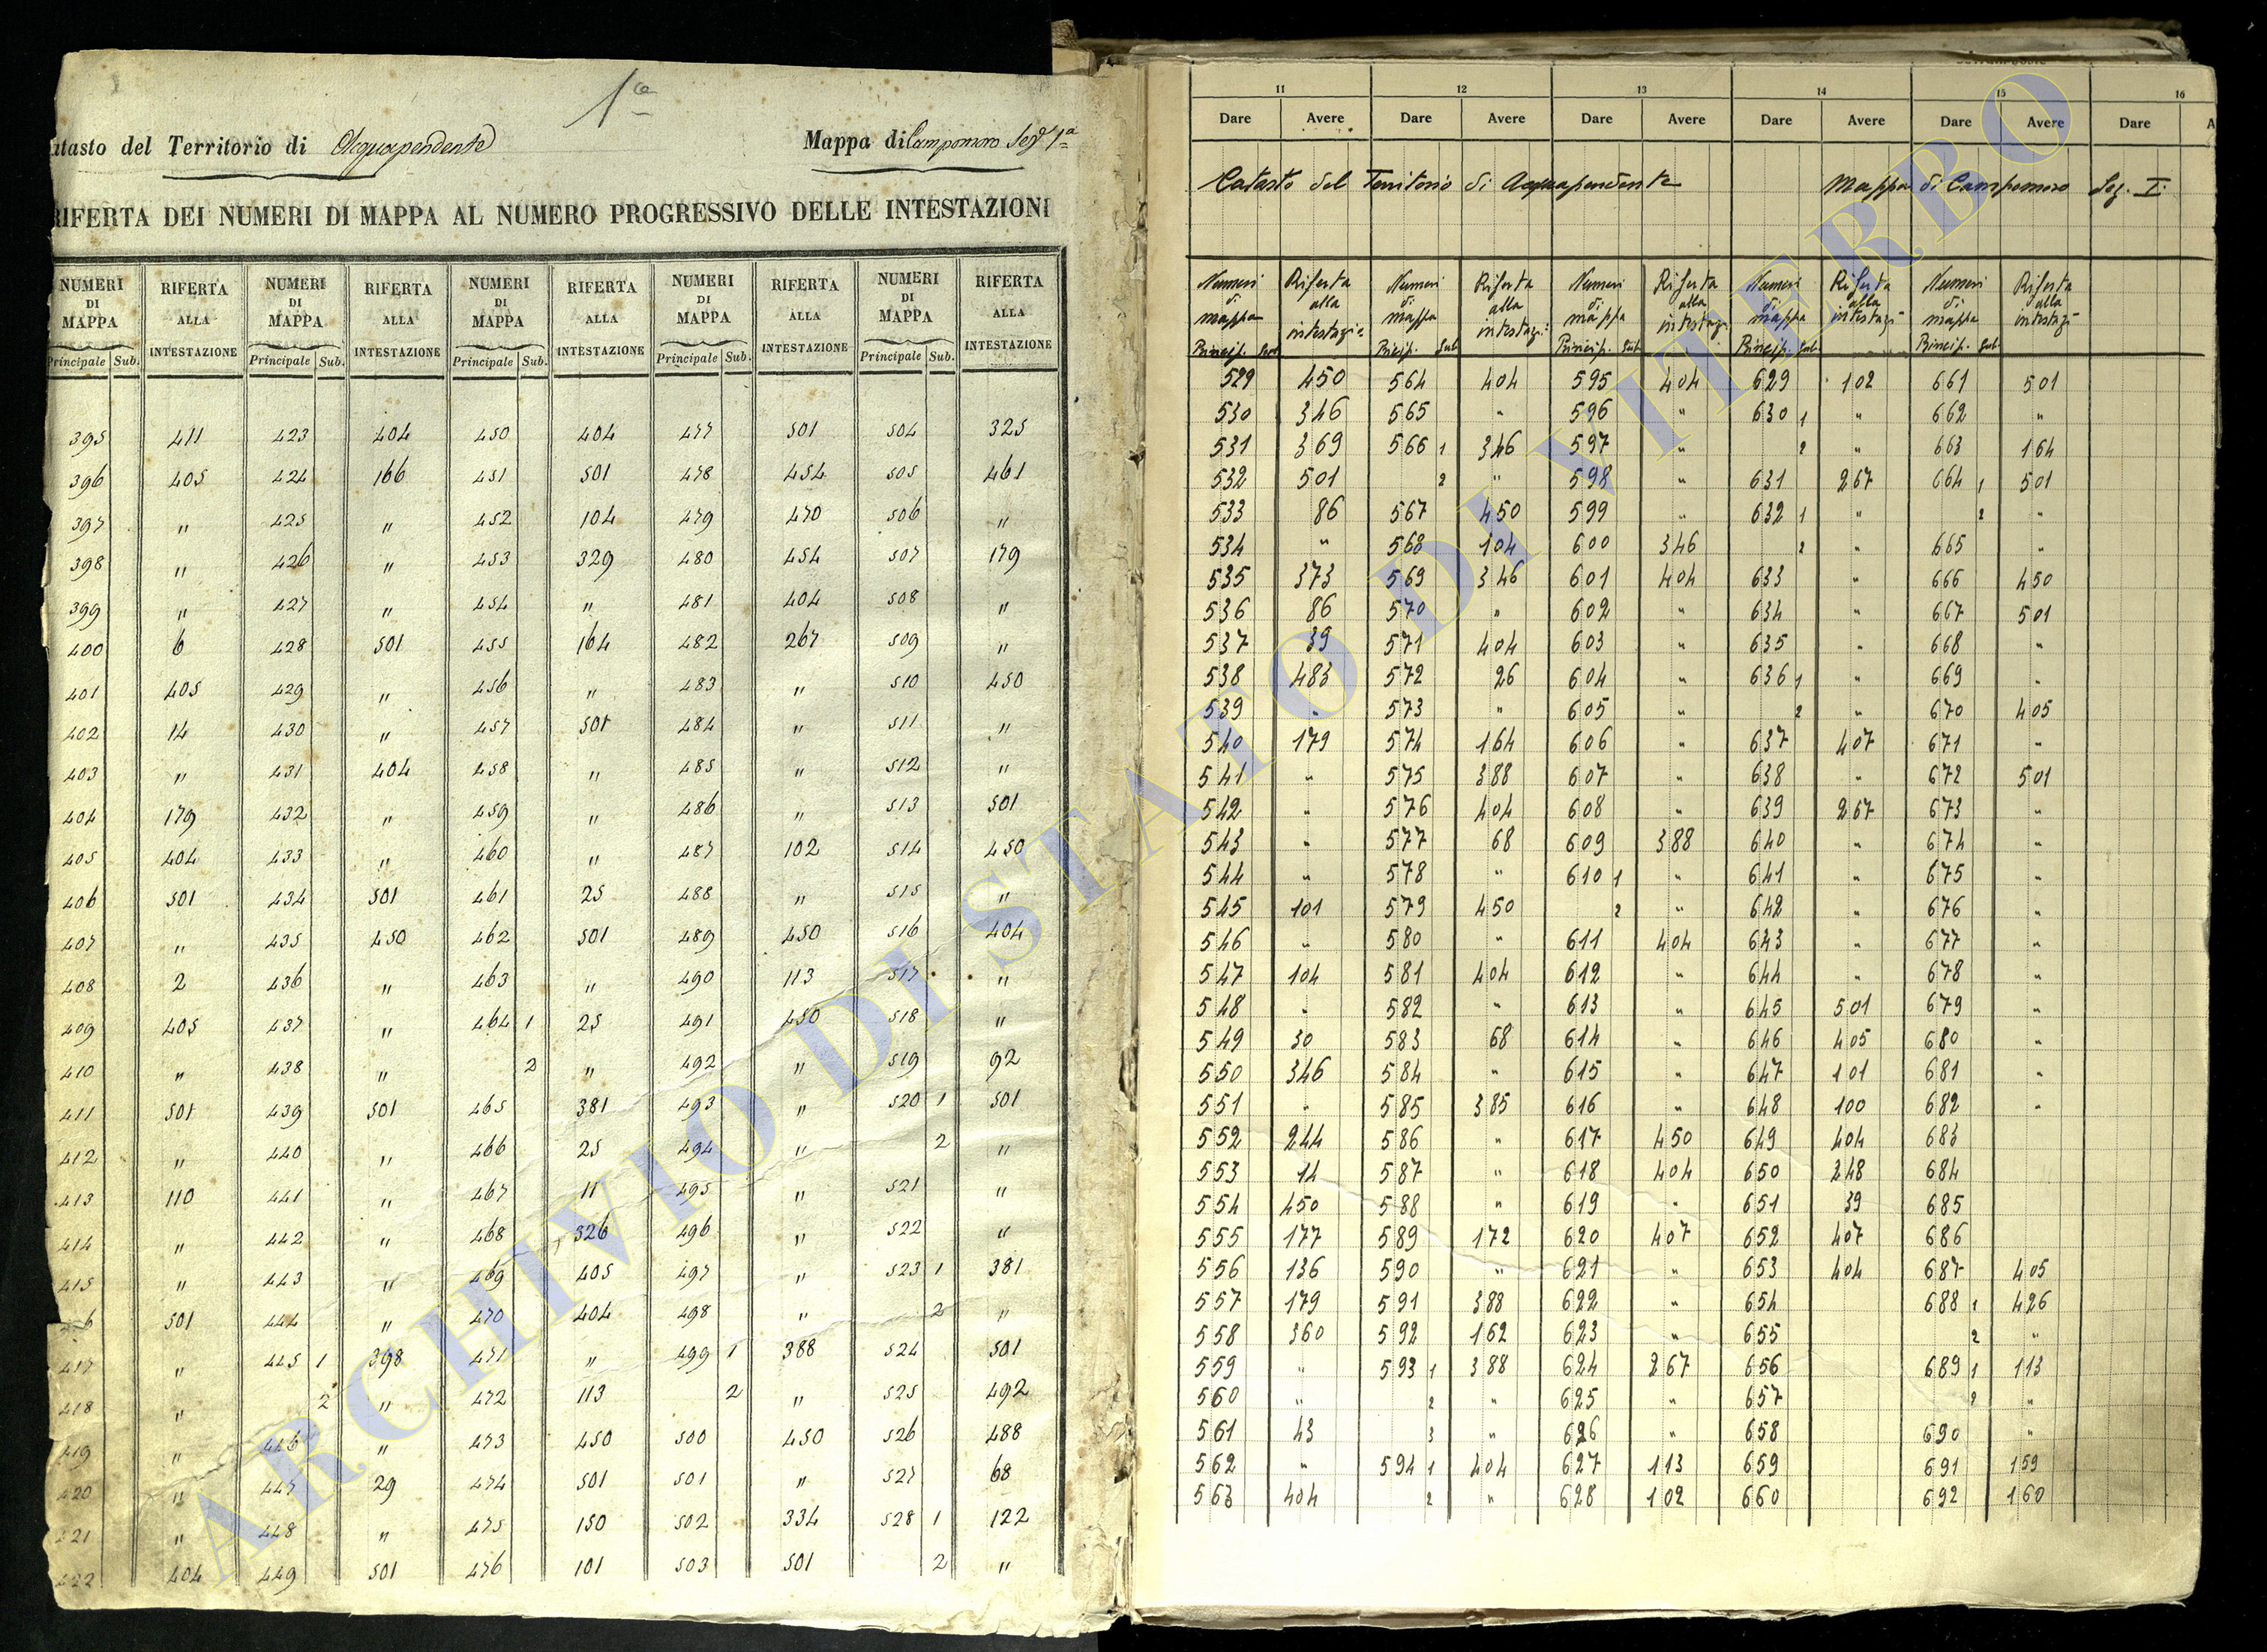 1ª
atasto del Territorio di Acquapendente Mappa di Campomoro Sez. 1ª
RIFERTA DEI NUMERI DI MAPPA AL NUMERO PROGRESSIVO DELLE INTESTAZIONI
NUMERI RIFERTA NUMERI RIFERTA NUMERI RIFERTA NUMERI RIFERTA NUMERI RIFERTA
DI ALLA DI ALLA DI ALLA DI ALLA DI ALLA
MAPPA INTESTAZIONE MAPPA INTESTAZIONE MAPPA INTESTAZIONE MAPPA INTESTAZIONE MAPPA INTESTAZIONE
Principale Sub. Principale Sub. Principale Sub. Principale Sub. Principale Sub.
395 411 423 404 450 404 477 501 504 325
396 405 424 166 451 501 478 454 505 461
397 " 425 " 452 104 479 470 506 "
398 " 426 " 453 329 480 454 507 179
399 " 427 " 454 " 481 404 508 "
400 6 428 501 455 164 482 267 509 "
401 405 429 " 456 " 483 " 510 450
402 14 430 " 457 501 484 " 511 "
403 " 431 404 458 " 485 " 512 "
404 179 432 " 459 " 486 " 513 501
405 404 433 " 460 " 487 102 514 450
406 501 434 501 461 25 488 " 515 "
407 " 435 450 462 501 489 450 516 404
408 2 436 " 463 " 490 113 517 "
409 405 437 " 464 1 25 491 450 518 "
410 " 438 " 2 " 492 " 519 92
411 501 439 501 465 381 493 " 520 1 501
412 " 440 " 466 25 494 " 2 "
413 110 441 " 467 11 495 " 521 "
414 " 442 " 468 326 496 " 522 "
415 " 443 " 469 405 497 " 523 1 381
6 501 444 " 470 404 498 " 2 "
417 " 445 1 398 471 " 499 1 388 524 501
418 " 2 " 472 113 2 " 525 492
419 " 446 " 473 450 500 450 526 488
420 " 447 29 474 501 501 " 527 68
421 " 448 " 475 150 502 334 528 1 122
422 404 449 501 476 101 503 501 2 "
11 12 13 14 15 16
Dare Avere Dare Avere Dare Avere Dare Avere Dare Avere Dare A
Catasto del Territorio di Acquapendente Mappa di Campomoro Sez. I.
Numeri Riferta Numeri Riferta Numeri Riferta Numeri Riferta Numeri Riferta
di alla di alla di alla di alla di alla
mappa intestazi= mappa intestazi= mappa intestazi. mappa intestazi= mappa intestazi=
Princip. Sub Princip. Sub Princip. Sub Princip. Sub Princip. Sub
529 450 564 404 595 404 629 102 661 501
530 346 565 " 596 " 630 1 " 662 "
531 369 566 1 346 597 " 2 " 663 164
532 501 2 " 598 " 631 267 664 1 501
533 86 567 450 599 " 632 1 " 2 "
534 " 568 104 600 346 2 " 665 "
535 373 569 346 601 404 633 " 666 450
536 86 570 " 602 " 634 " 667 501
537 39 571 404 603 " 635 " 668 "
538 483 572 26 604 " 636 1 " 669 "
539 " 573 " 605 " 2 " 670 405
540 179 574 164 606 " 637 407 671 "
541 " 575 388 607 " 638 " 672 501
542 " 576 404 608 " 639 267 673 "
543 " 577 68 609 388 640 " 674 "
544 " 578 " 610 1 " 641 " 675 "
545 101 579 450 2 " 642 " 676 "
546 " 580 " 611 404 643 " 677 "
547 104 581 404 612 " 644 " 678 "
548 " 582 " 613 " 645 501 679 "
549 30 583 68 614 " 646 405 680 "
550 346 584 " 615 " 647 101 681 "
551 " 585 385 616 " 648 100 682 "
552 244 586 " 617 450 649 404 683
553 14 587 " 618 404 650 348 684
554 450 588 " 619 " 651 39 685
555 177 589 172 620 407 652 407 686
556 136 590 " 621 " 653 404 687 405
557 179 591 388 622 " 654 688 1 426
558 360 592 162 623 " 655 2 "
559 " 593 1 388 624 267 656 689 1 113
560 " 2 " 625 " 657 2 "
561 43 3 " 626 " 658 690 "
562 " 594 1 404 627 113 659 691 159
563 404 2 " 628 102 660 692 160
ARCHIVIO DI STATO DI VITERBO